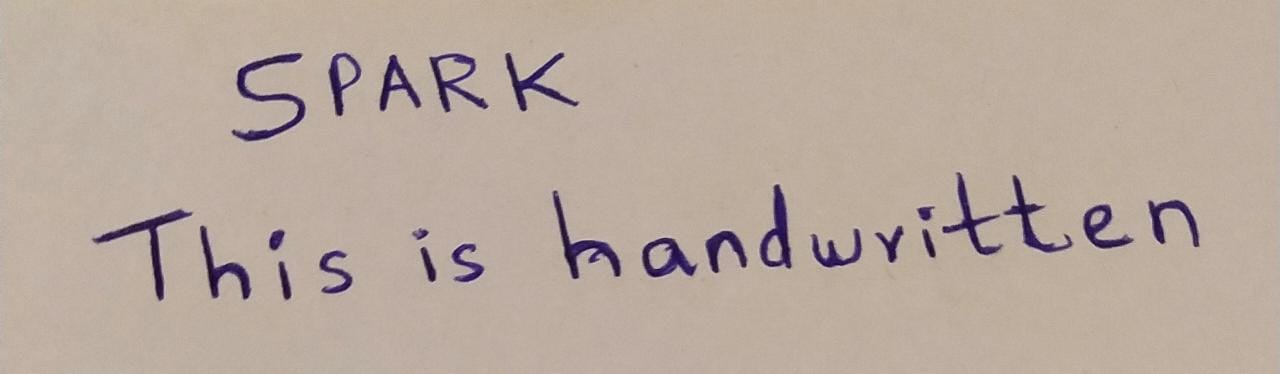 SPARK
This is handwritten